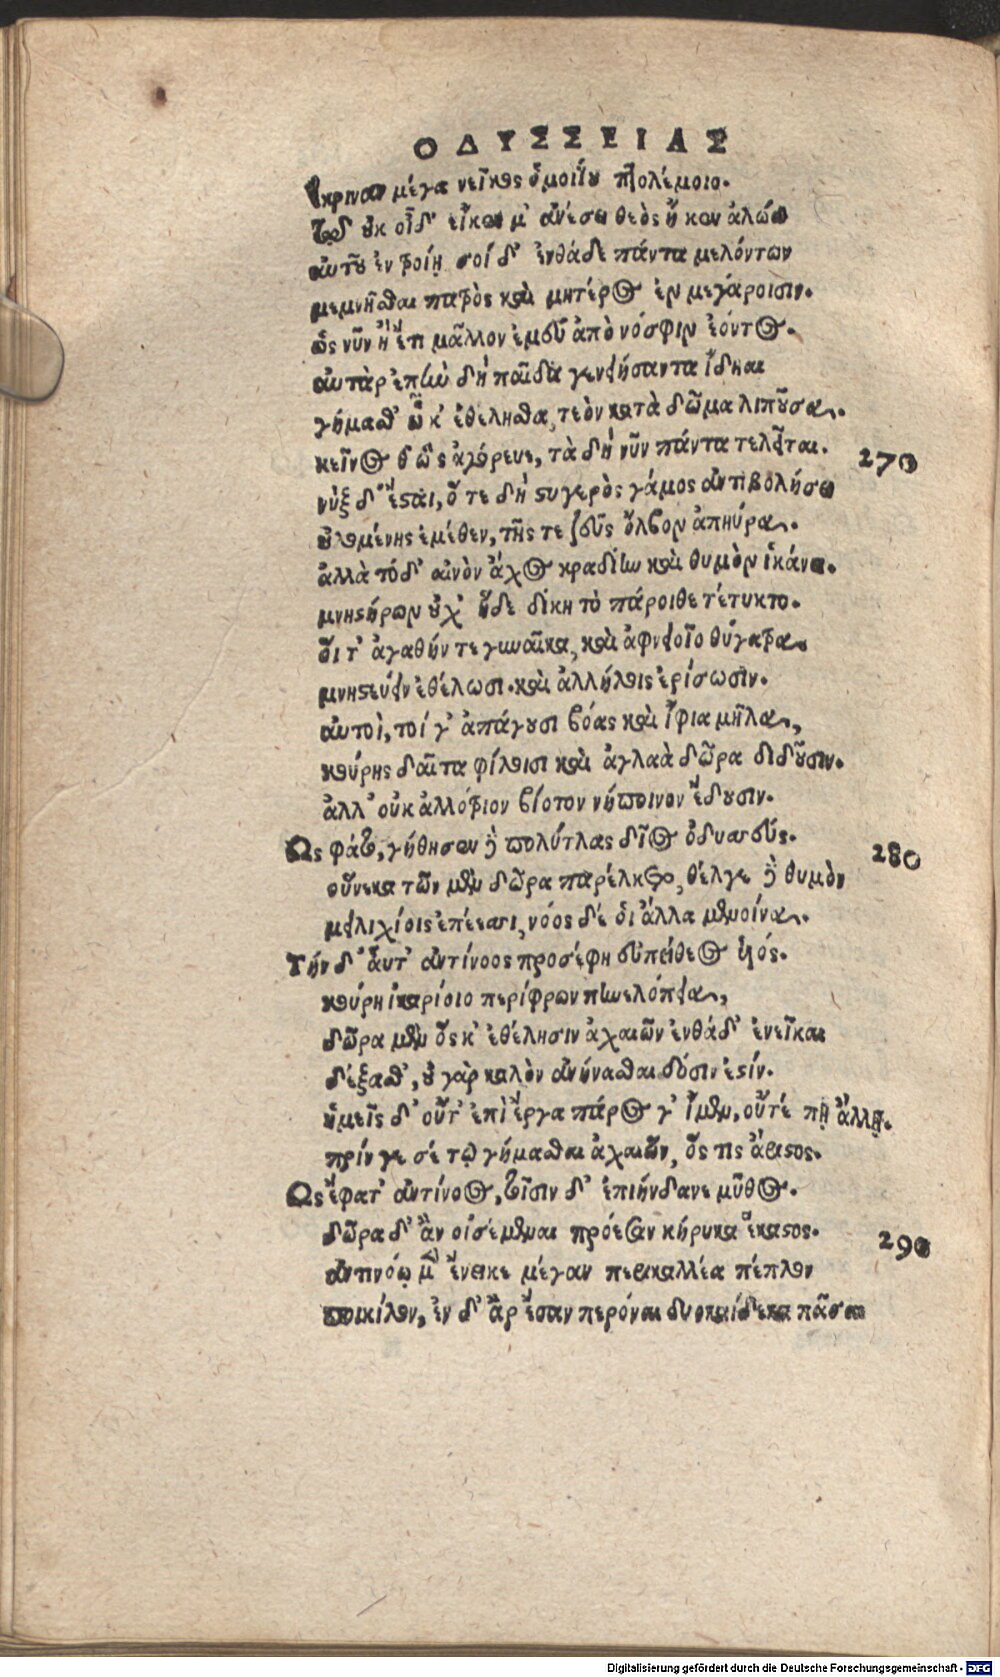 ΟΔΥΣΣΕΙΑΣ
ἔκριναν μέγα νεῖκος ὁμοιΐου πτολέμοιο.
τῷ δ' οὐκ οἶδ' εἴ κεν μ' ἀνέσει θεὸς ἦ κεν ἁλώω
αὐτοῦ ἐν τροίῃ σοί δ' ἐνθάδε πάντα μελόντων
μεμνῆσθαι πατρὸς καὶ μητέρος ἐν μεγάροισιν.
ὡς νῦν ἢ ἔτι μᾶλλον ἐμοῦ ἀπὸ νόσφιν ἐόντος.
αὐτὰρ ἐπὴν δὴ παῖδα γενειήσαντα ἴδηαι
γήμασθ' ᾧ κ' ἐθέλησθα, τεὸν κατὰ δῶμα λιποῦσα.
κεῖνος τὼς ἀγόρευε, τὰ δὴ νῦν πάντα τελεῖται. 270
νὺξ δ' ἔσται, ὅτε δὴ στυγερὸς γάμος ἀντιβολήσει
οὐλομένης ἐμέθεν, τῆς τε ζεὺς ὄλβον ἀπηύρα.
ἀλλὰ τόδ' αἰνὸν ἄχος κραδίην καὶ θυμὸν ἱκάνει.
μνηστήρων οὐχ' ἥδε δίκη τὸ πάροιθε τέτυκτο.
οἵ τ' ἀγαθήν τε γυναῖκα, καὶ ἀφνειοῖο θύγατρα
μνηστεύειν ἐθέλωσι. καὶ ἀλλήλοις ἐρίσωσιν.
αὐτοὶ, τοί γ' ἀπάγουσι βόας καὶ ἴφια μῆλα,
κούρης δαῖτα φίλοισι καὶ ἀγλαὰ δῶρα διδοῦσιν.
ἀλλ' οὐκ ἀλλότριον βίοτον νήποινον ἔδουσιν.
Ως φάτο, γήθησεν δὲ πολύτλας δῖος ὀδυσσεύς. 280
οὕνεκα τῶν μὲν δῶρα παρέλκετο, θέλγε δὲ θυμὸν
μειλιχίοις ἐπέεσσι, νόος δέ οἱ ἄλλα μενοίνα.
Τὴν δ' αὖτ' ἀντίνοος προσέφη εὐπείθεος υἱός.
κούρη ἰκαρίοιο περίφρων πηνελόπεια,
δῶρα μὲν ὅς κ' ἐθέλησιν ἀχαιῶν ἐνθάδ' ἐνεῖκαι
δέξασθ', οὐ γὰρ καλὸν ἀνήνασθαι δόσιν ἐστίν.
ἡμεῖς δ' οὔτ' ἐπὶ ἔργα πάρος γ' ἴμεν, οὔτέ πῃ ἄλλῃ.
πρίν γε σέ τῳ γήμασθαι ἀχαιῶν, ὅς τις ἄριστος.
Ως ἔφατ' ἀντίνοος, τοῖσιν δ' ἐπιήνδανε μῦθος.
δῶρα δ' ἂν οἰσέμεναι πρόεσαν κήρυκα ἕκαστος. 290
ἀντινόῳ μὲν ἔνεικε μέγαν περικαλλέα πέπλον
ποικίλον, ἐν δ' ἂρ ἔσαν περόναι δυοκαίδεκα πᾶσαι
Digitalisierung gefördert durch die Deutsche Forschungsgemeinschaft - DFG